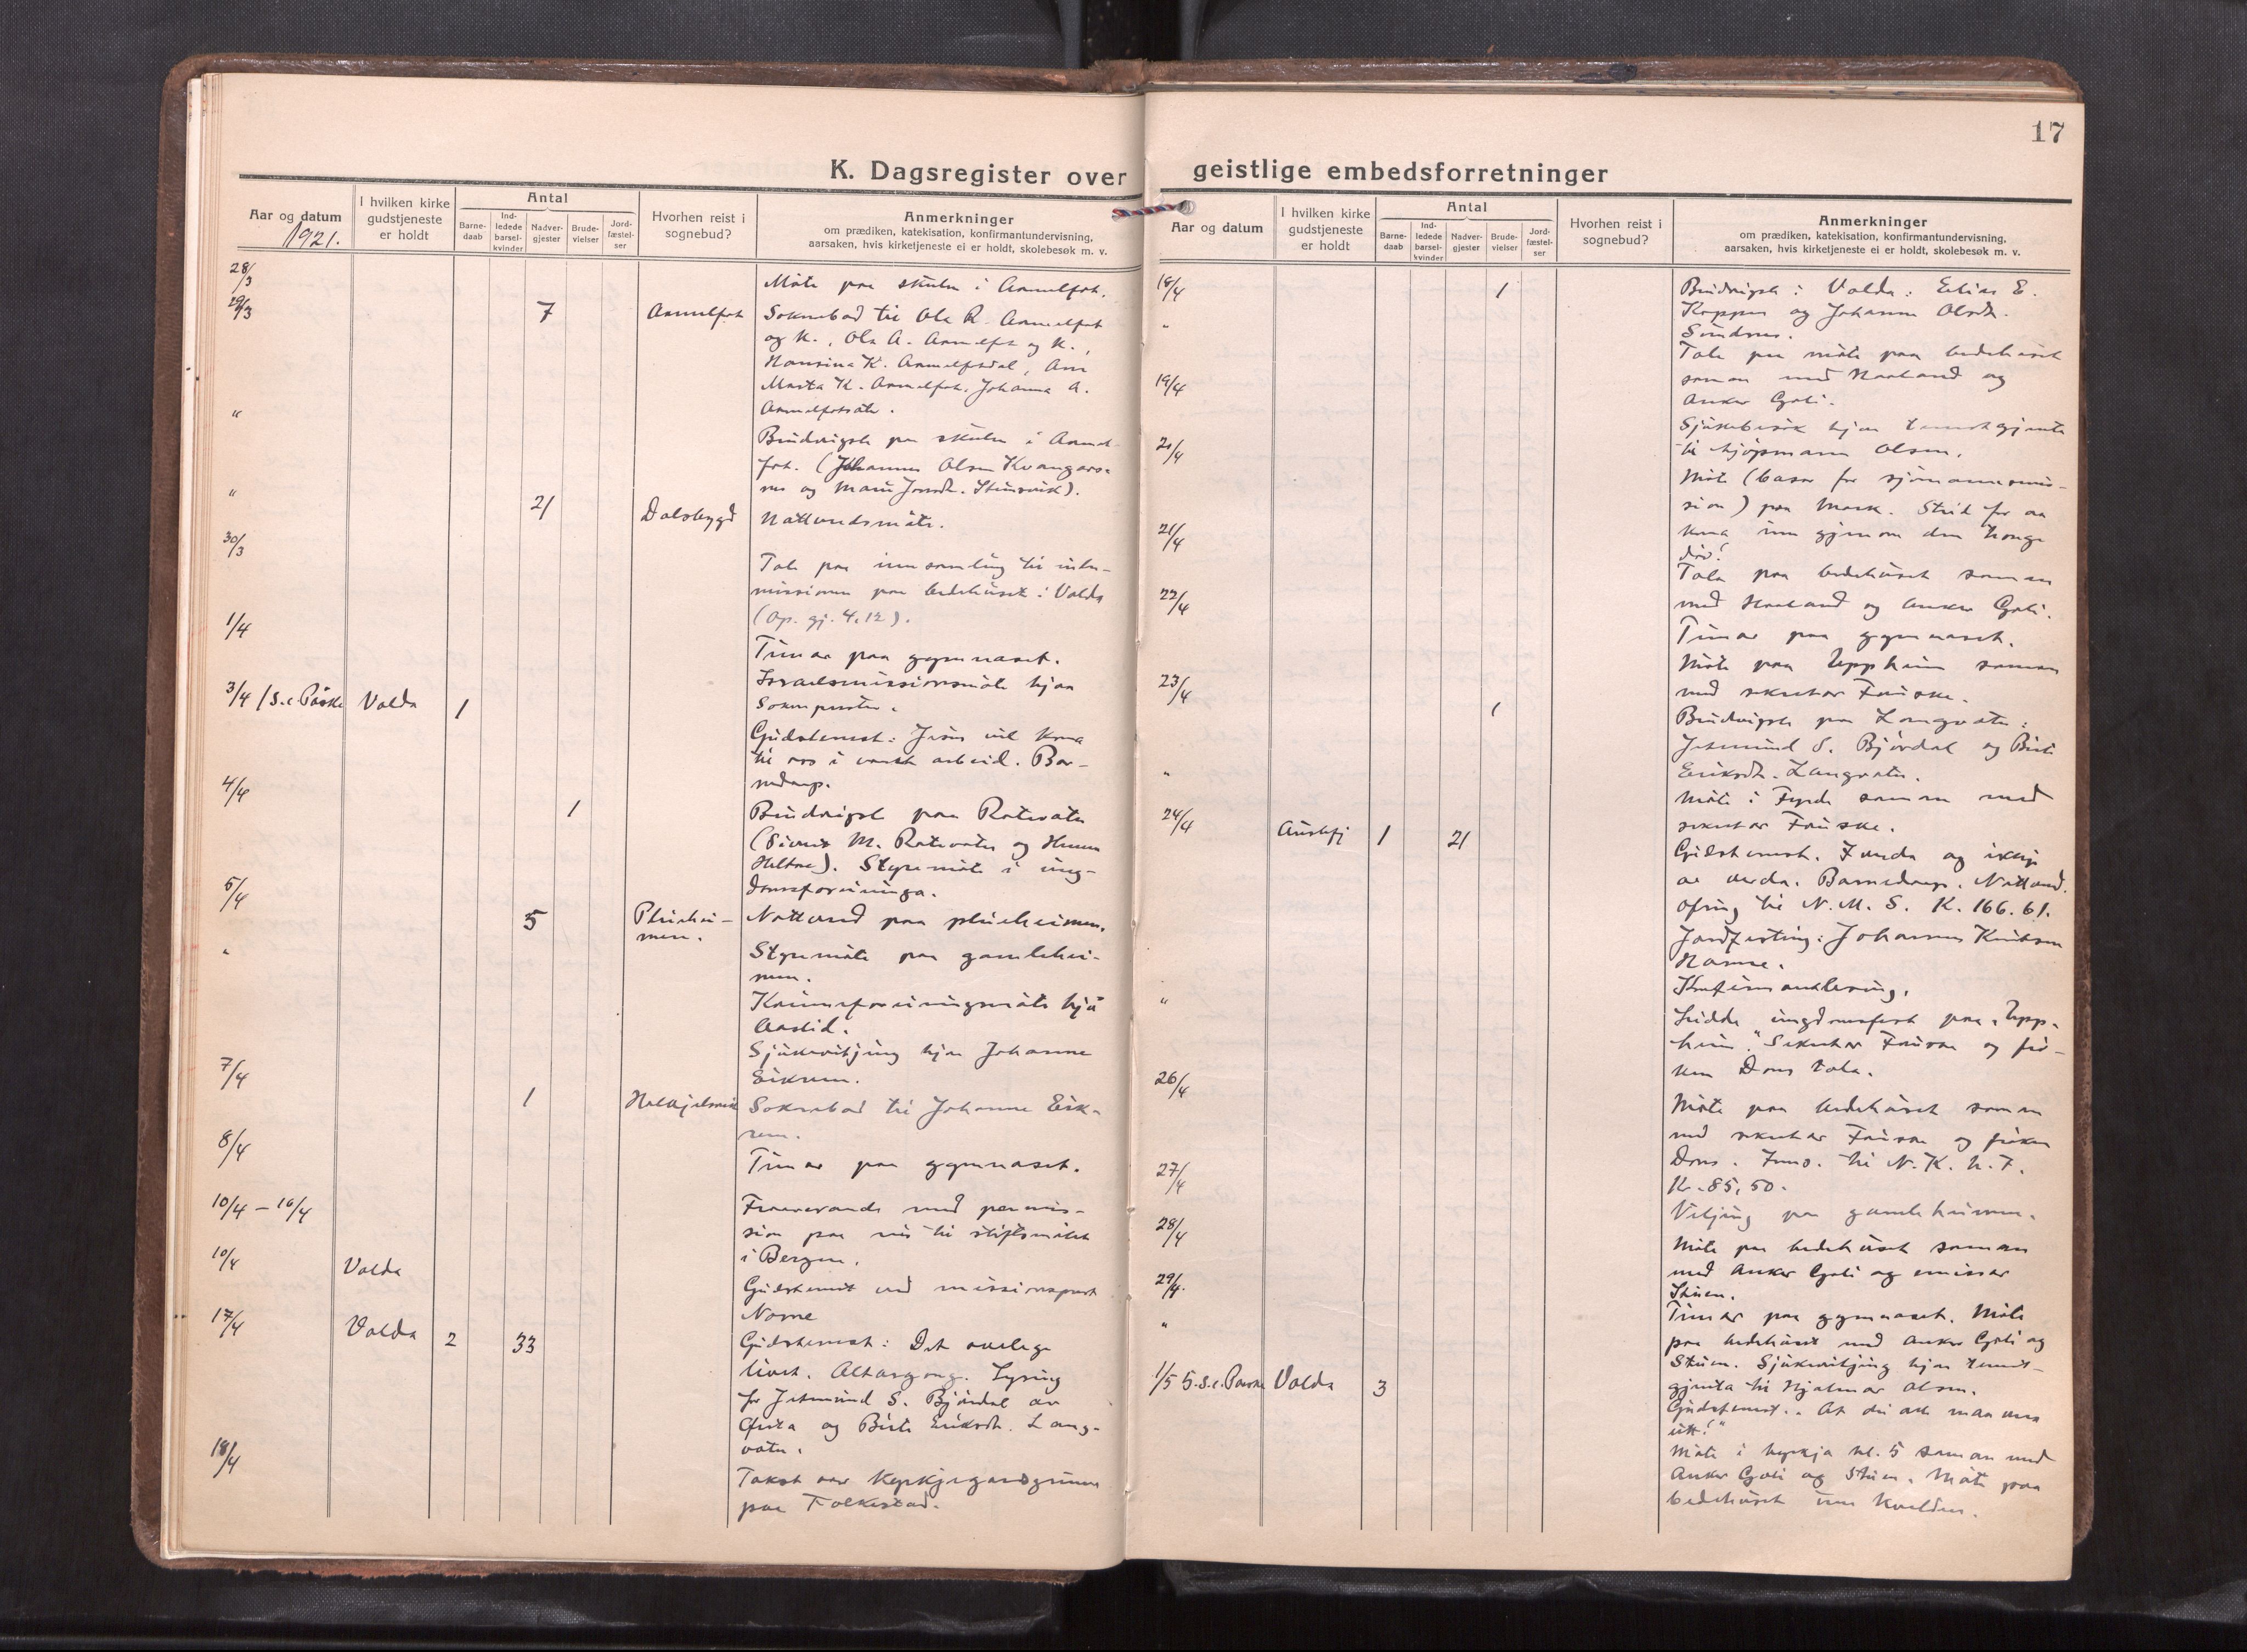 17
K. Dagsregister over geistlige embedsforretninger
Aar og datum
1921.
I hvilken kirke gudstjeneste er holdt
Antal
Barne-daab
Ind-ledede barsel-kvinder
Nadver-gjester
Brude-vielser
Jord-fæstel-ser
Hvorhen reist i sognebud?
Anmerkninger
om prædiken, katekisation, konfirmantundervisning,
aarsaken, hvis kirketjeneste ei er holdt, skolebesøk m. v.
28/3 Möte paa skulen i Aamelfot.
29/3 7 Aamelfot Soknebod til Ola R. Aamelfot
og K., Ola A. Aamelfot og K.,
Hansina K. Aamelfotdal, Ane
Marta K. Aamelfot, Johanna A.
Aamelfotsæte.
" Brudvigsle paa skulen i Aamel-
fot. (Johannes Olsen Kvangars-
nes og Marie Jonsdt. Steinsvik).
" 21 Dalsbygd Nattverdsmöte.
30/3 Tale paa innsamling til indre-
missionen paa bedehuset i Volda
(Ap. gj. 4,12).
1/4 Timar paa gymnaset.
Israelsmissionsmöte hjaa
Soknepresten.
3/4 (S. e. Påske Volda 1
Gudstenest: Jesus vil koma
til oss i vaart arbeid. Bar-
nedaap.
4/4 1 Brudvigsle paa Rotevatn
(Sivert M. Rotevatn og
Heltne). Styremöte i ung-
domsforeininga.
5/4 5 Pleiehei-
men. Nattverd paa pleieheimen.
" Styremöte paa gamlehei-
men.
Kvinneforeiningsmöte hjå
Aastid.
Sjukevitjing hjaa Johanne
Eikrem.
7/4 1 Helkjelsvik Soknebod til Johanne Eik-
rem.
8/4 Timar paa gymnaset.
10/4 – 16/4 Fraaverande med permis-
sion paa reis til stiftsmötet
i Bergen.
10/4 Volda Gudstenest ved missionsprest
Norne
17/4 Volda 2 33 Gudstenest: Det livet. Altargang. Lysing
for Jetmund S. Björdal av
Örsta og Berte Eriksdt. Lang-
vatn.
18/4 Takst over kyrkjegardsgrunn
paa Folkestad.
Aar og datum
I hvilken kirke gudstjeneste er holdt
Antal
Barne-daab
Ind-ledede barsel-kvinder
Nadver-gjester
Brude-vielser
Jord-fæstel-ser
Hvorhen reist i sognebud?
Anmerkninger
om prædiken, katekisation, konfirmantundervisning,
aarsaken, hvis kirketjeneste ei er holdt, skolebesøk m. v.
18/4 1 Brudvigsle i Volda: Elias E.
Koppen og Johanne Olsdt.
Sundnes.
" Tale paa möte paa bedehuset
saman med Haaland og
Anker Goli.
19/4 Sjukebesök hjaa tenestgjenta
til kjöpmann Olsen.
20/4 Möte (basar for sjömannsmis-
sion) paa Mork. Strid for aa
koma inn gjenom den tronge
dör!
21/4 Tala paa bedehuset saman
med Haaland og Anker Goli.
22/4 Timar paa gymnaset.
Möte paa Uppheim saman
med sekretær Fauske.
23/4 1 Brudvigsle paa Langvatn:
Jetmund S. Björdal og Berte
Eriksdt. Langvatn.
" Möte i Fyrde saman med
sekretær Fauske.
24/4 Austefj 1 21 Gudstenest. Jorda og ikkje
av verda. Barnedaap. Nattverd.
Ofring til N. M. S. K. 166.61.
Jordfesting: Johannes Knutsen
Hamre.
Konfirmantlesing.
" Leidde ungdomsfest paa "Upp-
heim." Sekretær Fauske og frö-
ken Dons tala.
26/4 Möte paa bedehuset saman
med sekretær Fauske og fröken
Dons. Inns. til N. K. U. F.
Kr. 85,50.
27/4 Vitjing paa gamleheimen.
28/4 Möte paa bedehuset saman
med Anker Goli og emissær
Stuen.
29/4. Timar paa gymnaset. Möte
paa bedehuset med Anker Goli og
" Stuen. Sjukevitjing hjaa tenest-
gjenta til Hjalmar Olsen.
1/5 5. S. e. Paaske Volda 3 Gudstenest: "At du alt maa vera
itt!"
Möte i kyrkja kl. 5 saman med
Anker Goli og Stuen. Möte paa
bedehuset um kvelden.